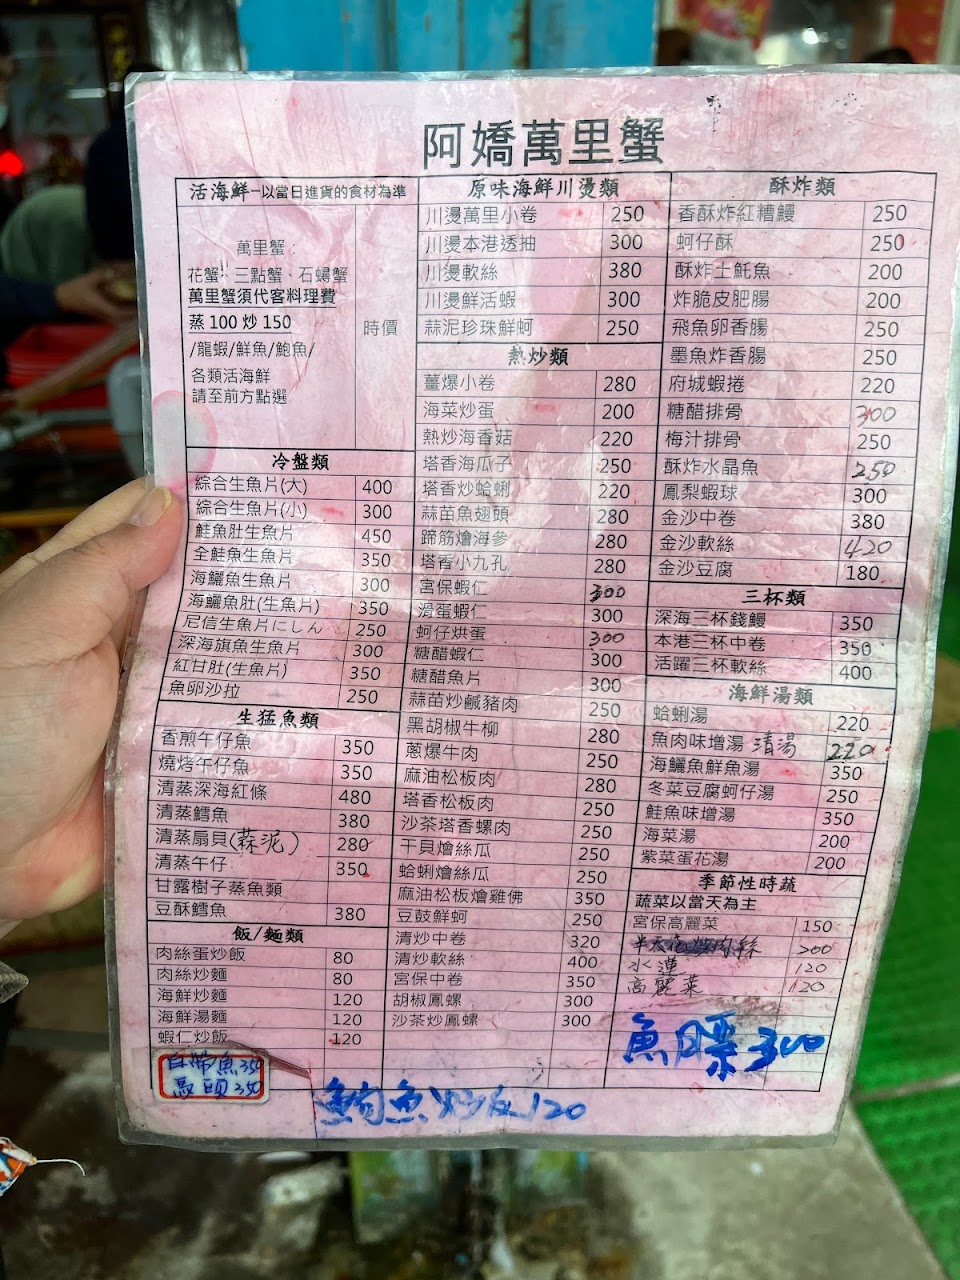 阿嬌萬里蟹
活海鮮-以當日進貨的食材為準
萬里蟹:
花蟹、三點蟹、石蟳蟹
萬里蟹須代客料理費
蒸100 炒150
/龍蝦/鮮魚/鮑魚/
各類活海鮮
請至前方點選
時價
冷盤類
綜合生魚片(大) 400
綜合生魚片(小) 300
鮭魚肚生魚片 450
全鮭魚生魚片 350
海鱺魚生魚片 300
海鱺魚肚(生魚片) 350
尼信生魚片にしん 250
深海旗魚生魚片 300
紅甘肚(生魚片) 350
魚卵沙拉 250
生猛魚類
香煎午仔魚 350
燒烤午仔魚 350
清蒸深海紅條 480
清蒸鱈魚 380
清蒸扇貝(蒜泥) 280
清蒸午仔 350
甘露樹子蒸魚類
豆酥鱈魚 380
飯/麵類
肉絲蛋炒飯 80
肉絲炒麵 80
海鮮炒麵 120
海鮮湯麵 120
蝦仁炒飯 120
白帶魚350
馬頭350
原味海鮮川燙類
川燙萬里小卷 250
川燙本港透抽 300
川燙軟絲 380
川燙鮮活蝦 300
蒜泥珍珠鮮蚵 250
熱炒類
薑爆小卷 280
海菜炒蛋 200
熱炒海香菇 220
塔香海瓜子 250
塔香炒蛤蜊 220
蒜苗魚翅頭 280
蹄筋燴海參 280
塔香小九孔 280
宮保蝦仁 300
滑蛋蝦仁 300
蚵仔烘蛋 300
糖醋蝦仁 300
糖醋魚片 300
蒜苗炒鹹豬肉 250
黑胡椒牛柳 280
蔥爆牛肉 250
麻油松板肉 280
塔香松板肉 250
沙茶塔香螺肉 250
干貝燴絲瓜 250
蛤蜊燴絲瓜 250
麻油松板燴雞佛 350
豆鼓鮮蚵 250
清炒中卷 320
清炒軟絲 400
宮保中卷 350
胡椒鳳螺 300
沙茶炒鳳螺 300
酥炸類
香酥炸紅糟鰻 250
蚵仔酥 250
酥炸土魠魚 200
炸脆皮肥腸 200
飛魚卵香腸 250
墨魚炸香腸 250
府城蝦捲 220
糖醋排骨 300
梅汁排骨 250
酥炸水晶魚 250
鳳梨蝦球 300
金沙中卷 380
金沙軟絲 420
金沙豆腐 180
三杯類
深海三杯錢鰻 350
本港三杯中卷 350
活躍三杯軟絲 400
海鮮湯類
蛤蜊湯 220
魚肉味增湯 清湯 220
海鱺魚鮮魚湯 350
冬菜豆腐蚵仔湯 250
鮭魚味增湯 350
海菜湯 200
紫菜蛋花湯 200
季節性時蔬
蔬菜以當天為主
宮保高麗菜 150
肉絲 200
水蓮 120
高麗菜 120
魚膘300
魩魚炒飯120